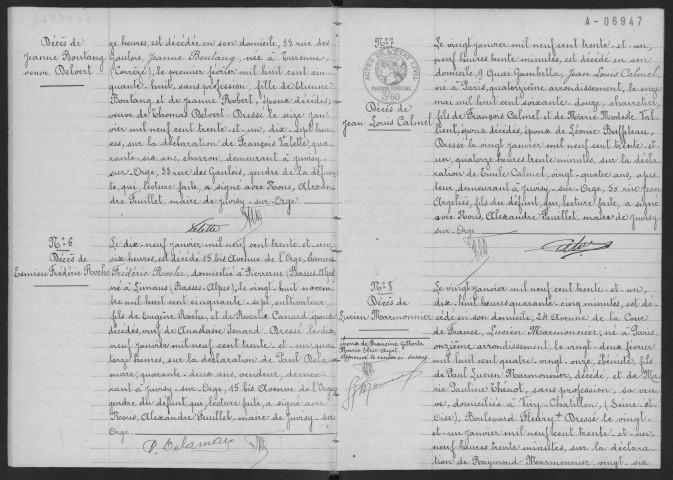 Décès de
Jeanne Boulang
veuve Delvert
ze heures, est décédée en son domicile, 38 rue des
Gaulois, Jeanne Boulang, née à Turenne,
(Corrèze), le premier février mil huit cent cin
quante-huit, sans profession, fille de Etienne
Boulang et de Jeanne Robert, époux décédés;
veuve de Thomas Delvert. Dressé le seize jan
vier mil neuf cent trente et un, dix-sept heu
res, sur la déclaration de François Valette, qua
rante-six ans, charron, demeurant à Juvisy-
sur-Orge, 38 rue des Gaulois, gendre de la défun
te qui, lecture faite, a signé avec Nous, Alexan
dre Feuillet, maire de Juvisy-sur-Orge.
Valette
N° 6
Décès de
Esmieu Frédéric Roche
Le dix-neuf janvier mil neuf cent trente et un,
six heures, est décédé 15 bis Avenue de l'Orge, Esmieu
Frédéric Roche, domicilié à Pierrerue (Basses-Alpes)
né à Limans (Basses-Alpes), le vingt-huit novem
bre mil huit cent cinquante-sept, cultivateur,
fils de Eugène Roche, et de Rosalie Canard, époux
décédés, veuf de Anastasie Isnard. Dressé le dix
neuf janvier mil neuf cent trente et un, qua
torze heures, sur la déclaration de Paul Dela
mare, quarante-deux ans, vendeur, demeu
rant à Juvisy-sur-Orge, 15 bis Avenue de l'Orge
gendre du défunt qui, lecture faite, a signé avec
Nous, Alexandre Feuillet, maire de Juvisy-sur
Orge.
P. Delamare
A-06947
N° 7
ACTES DE L'ÉTAT CIVIL
PAPIER SPÉCIAL
3f60
Décès de
Jean Louis Calmel
Le vingt janvier mil neuf cent trente-et-un,
neuf heures trente minutes, est décédé en son
domicile, 9 Quai Gambetta, Jean Louis Calmel,
né à Paris, quatorzième arrondissement, le onze
mai mil huit cent soixante-douze, charretier,
fils de François Calmel et de Marie Modeste Val
lient, époux décédés, époux de Léonie Buffeteau.
Dressé le vingt janvier mil neuf cent trente-et
un, quatorze heures trente minutes, sur la décla
ration de Emile Calmel, vingt-quatre ans, ajus
teur, demeurant à Juvisy-sur-Orge, 50 rue Jean
Argeliès, fils du défunt, qui, lecture faite, a signé
avec Nous, Alexandre Feuillet, maire de Juvisy
sur-Orge.
N° 8
Décès de
Lucien Marmonnier
époux de Francine Gilberte
Marie
Approuvé le renvoi ci-dessus
Le vingt janvier mil neuf cent trente-et-un,
dix-huit heures quarante-cinq minutes, est dé
cédé en son domicile, 24 Avenue de la Cour
de France, Lucien Marmonnier, né à Paris,
onzième arrondissement, le vingt-deux février
mil huit cent quatre-vingt-onze, ébéniste, fils
de Paul Lucien Marmonnier, décédé, et de Ma
rie Pauline Thénot, sans profession, sa veu
ve, domiciliée à Viry-Chatillon, (Seine-et-
Oise), Boulevard Fleury. Dressé le vingt-
et-un janvier mil neuf cent trente-et-un,
neuf heures trente minutes, sur la déclara
tion de Raymond Marmonnier, vingt-six